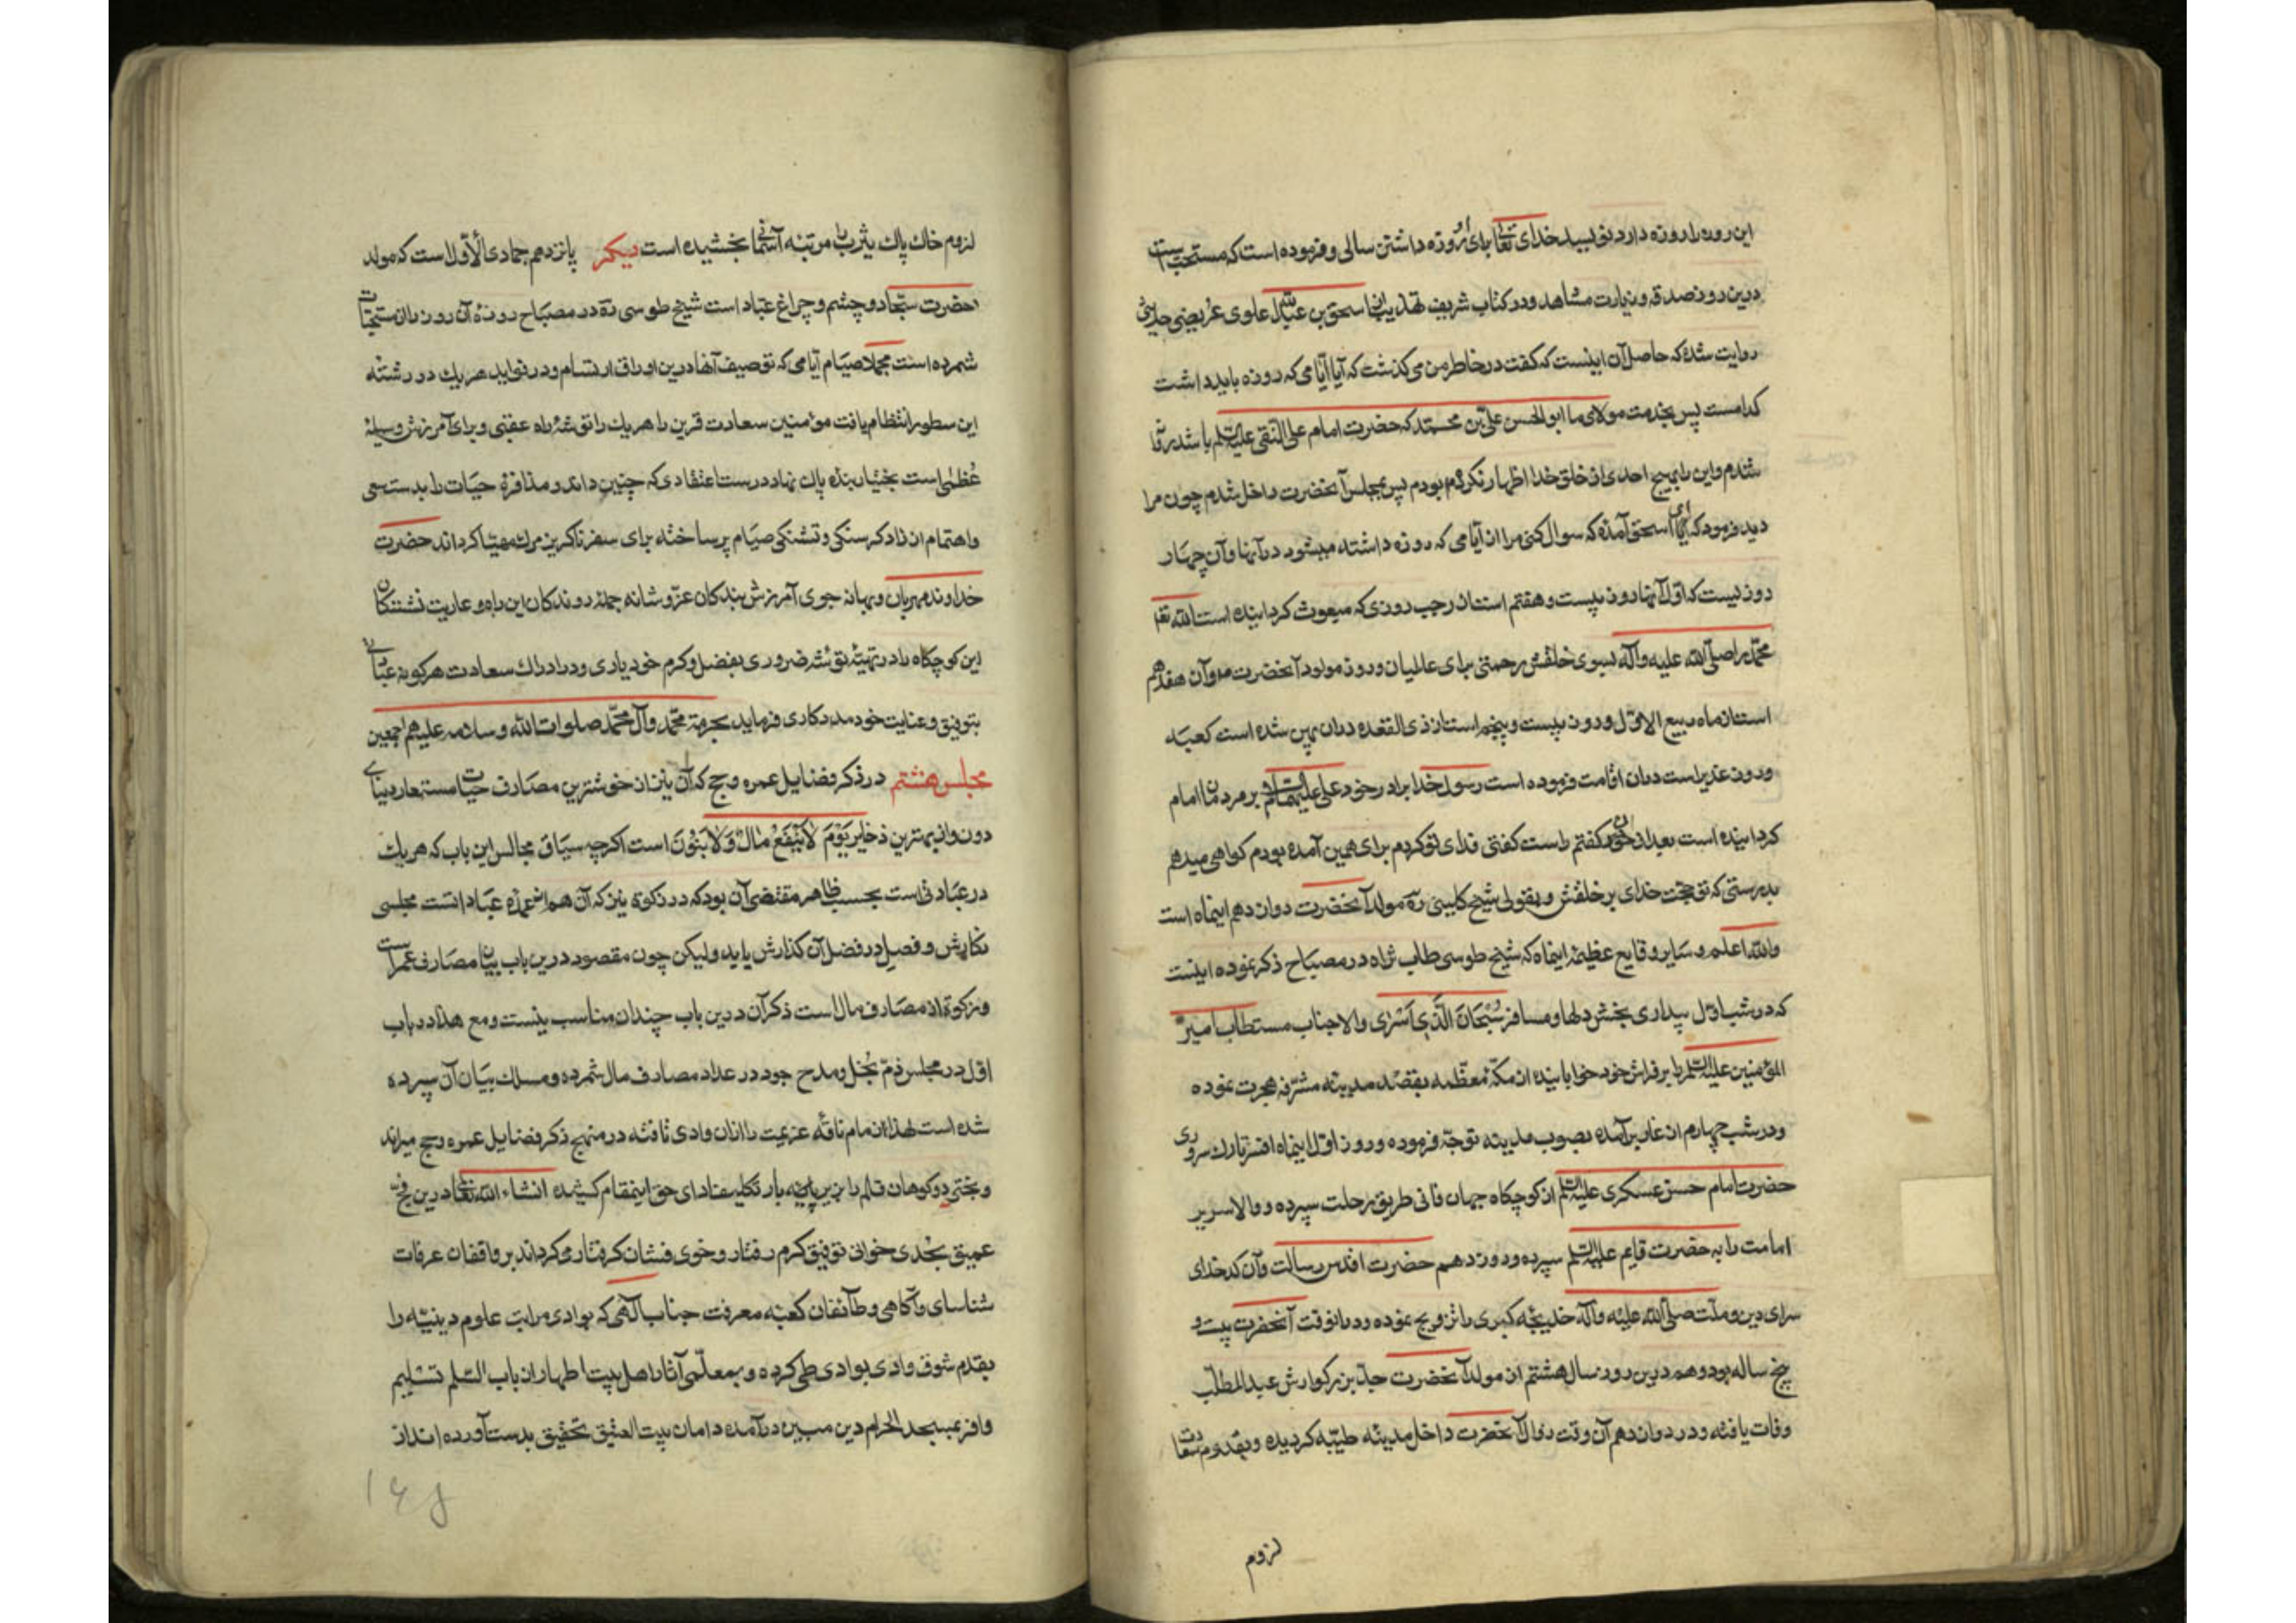 این روز را روزه دارد نویسد خدای تعالی برای او روزه داشتن سالی و فرموده است که مستحب است
درین روز صدقه و زیارت مشاهد و در کتاب شریف تهذیب از اسحق بن عبدالله علوی عریضی حدیثی
روایت شده که حاصل آن اینست که گفت در خاطر من می گذشت که آیا ایامی که روزه باید داشت
کدامست پس بخدمت مولای ما ابوالحسن علی بن محمد که حضرت امام علی النقی علیه السلم باشد
شدم و این را بهیچ احدی از خلق خدا اظهار نکرده بودم پس بمجلس آنحضرت داخل شدم چون مرا
دید فرمود که ای اسحق آمدهٔ که سوال کنی مرا از ایامی که روزه داشته میشود در آنها و آن چهار
روزیست که اول آنها روز بیست و هفتم است از رجب روزی که مبعوث گردانیده است الله تعالی
محمد را صلی الله علیه و آله بسوی خلقش رحمتی برای عالمیان و روز مولود آنحضرت و آن هفدهم
است از ماه ربیع الاول و روز بیست و پنجم است از ذی القعده در آن پهن شده است کعبه
و روز غدیر است در آن اقامت فرموده است رسول خدا برادر خود علی علیهما السلم را بر مردمان امام
گردانیده است بعد از خود گفتم راست گفتی فدای تو گردم برای همین آمده بودم گواهی میدهم
بدرستی که تو حجت خدای بر خلقش و بقولی شیخ کلینی ره مولد آنحضرت دوازدهم اینماه است
والله اعلم و سایر وقایع عظیمهٔ اینماه که شیخ طوسی طاب ثراه در مصباح ذکر نموده اینست
که در شب اول بیداری بخش دلها و مسافر سُبْحَانَ الَّذِی اَسْرَی والاجناب مستطاب امیر
المؤمنین علیه السلم را بر فراش خود خوابانیده از مکهٔ معظمه بقصد مدینه مشرفه هجرت نموده
و در شب چهارم از غار برآمده بصوب مدینه توجه فرموده و روز اول اینماه افسر تارک سروری
حضرت امام حسن عسکری علیه السلم از کوچکاه جهان فانی طریق رحلت سپرده و والا سریر
امامت را به حضرت قایم علیه السلم سپرده و روز دهم حضرت اقدس رسالت و آن کدخدای
سرای دین و ملت صلی الله علیه و آله خدیجه کبری را تزویج نموده و در آنوقت آنحضرت بیست و
پنج ساله بود و هم درین روز سال هشتم از مولد آنحضرت جد بزرگوارش عبدالمطلب
وفات یافته و در دوازدهم آن وقت زوال آنحضرت داخل مدینه طیبه گردیده و بقدوم سعادت
لزوم
لزوم خاک پاک یثرب را مرتبه آسمانی بخشیده است دیگر پانزدهم جمادی الاول است که مولد
حضرت سجاد و چشم و چراغ عباد است شیخ طوسی ره در مصباح روزهٔ آن روز را از مستحبات
شمرده است مجملا صیام ایامی که توصیف آنها درین اوراق ارتسام و در تواید هر یک در رشته
این سطور انتظام یافت مؤمنین سعادت قرین را هر یک را توشهٔ راه عقبی و برای آمرزش وسیلهٔ
عُظمی است بختیار بندهٔ پاک نهاد درست اعتقادی که چنین داند و مذاقرهٔ حیات را بدستیی
و اهتمام از زاد گرسنگی و تشنگی صیام پر ساخته برای سفر ناگزیر مرگ مهیا گرداند حضرت
خداوند مهربان و بهانه جوی آمرزش بندگان عز و شانه جمله روندگان این راه و عاریت نشتگان
این کوچکاه را در تهیهٔ توشهٔ ضروری بفضل و کرم خود یاری و در ادراک سعادت هر گونه عبادتی
بتوفیق و عنایت خود مددکاری فرماید بحرمة محمد و آل محمد صلوات الله و سلامه علیهم اجمعین
مجلس هشتم در ذکر فضایل عمره و حج که آن نیز از خوشترین مصارف حیات مستعار دنیای
دون و از بهترین ذخایر یَوْمَ لَایَنْفَعُ مَالٌ وَلَابَنُونَ است اگرچه سیاق مجالس این باب که هر یک
در عبادتی است بحسب ظاهر مقتضی آن بود که در زکوة نیز که آن هم از عمدهٔ عبادانست مجلسی
نگارش و فصیل در فضل آن گذارش یابد ولیکن چون مقصود درین باب بیان مصارف عمر است
و زکوة از مصارف مال است ذکر آن درین باب چندان مناسب نیست و مع هذا در باب
اول در مجلس ذم بُخل و مدح جود در عداد مصارف مال شمرده و مسلک بیان آن سپرده
شده است لهذا زمام ناقه عزیمت را از آن وادی تافته در منهج ذکر فضایل عمره و حج میراند
و بختی دو کوهان قلم را بزیر بار تکلیف ادای حق اینمقام کشیده انشاء الله تعالی درین فجّ
عمیق بحُدی خوانی توفیق گرم رفتار و خوی فشان گرفتار میگرداند بر واقفان عرفات
شناسای و آگاهی و طائفان کعبه معرفت جناب الهی که بوادی مراتب علوم دینیه را
بقدم شوق وادی بوادی طی کرده و بمعلمی آثار اهل بیت اطهار از باب السلم تسلیم
وافر بمسجد الحرام دین مبین درآمده دامان بیت العتیق تحقیق بدست آورده اند از
۱۶۸